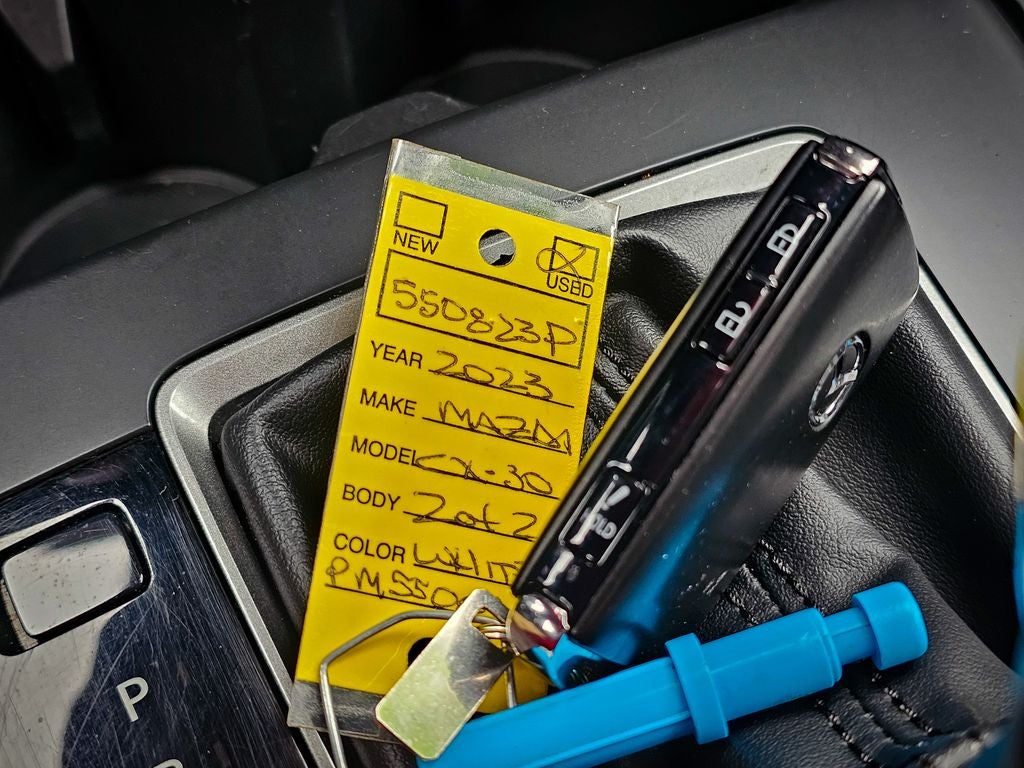 NEW
USED
550823P
YEAR 2023
MAKE MAZDA
MODEL CX-30
BODY 2 of 2
COLOR WHIT
PM550
P